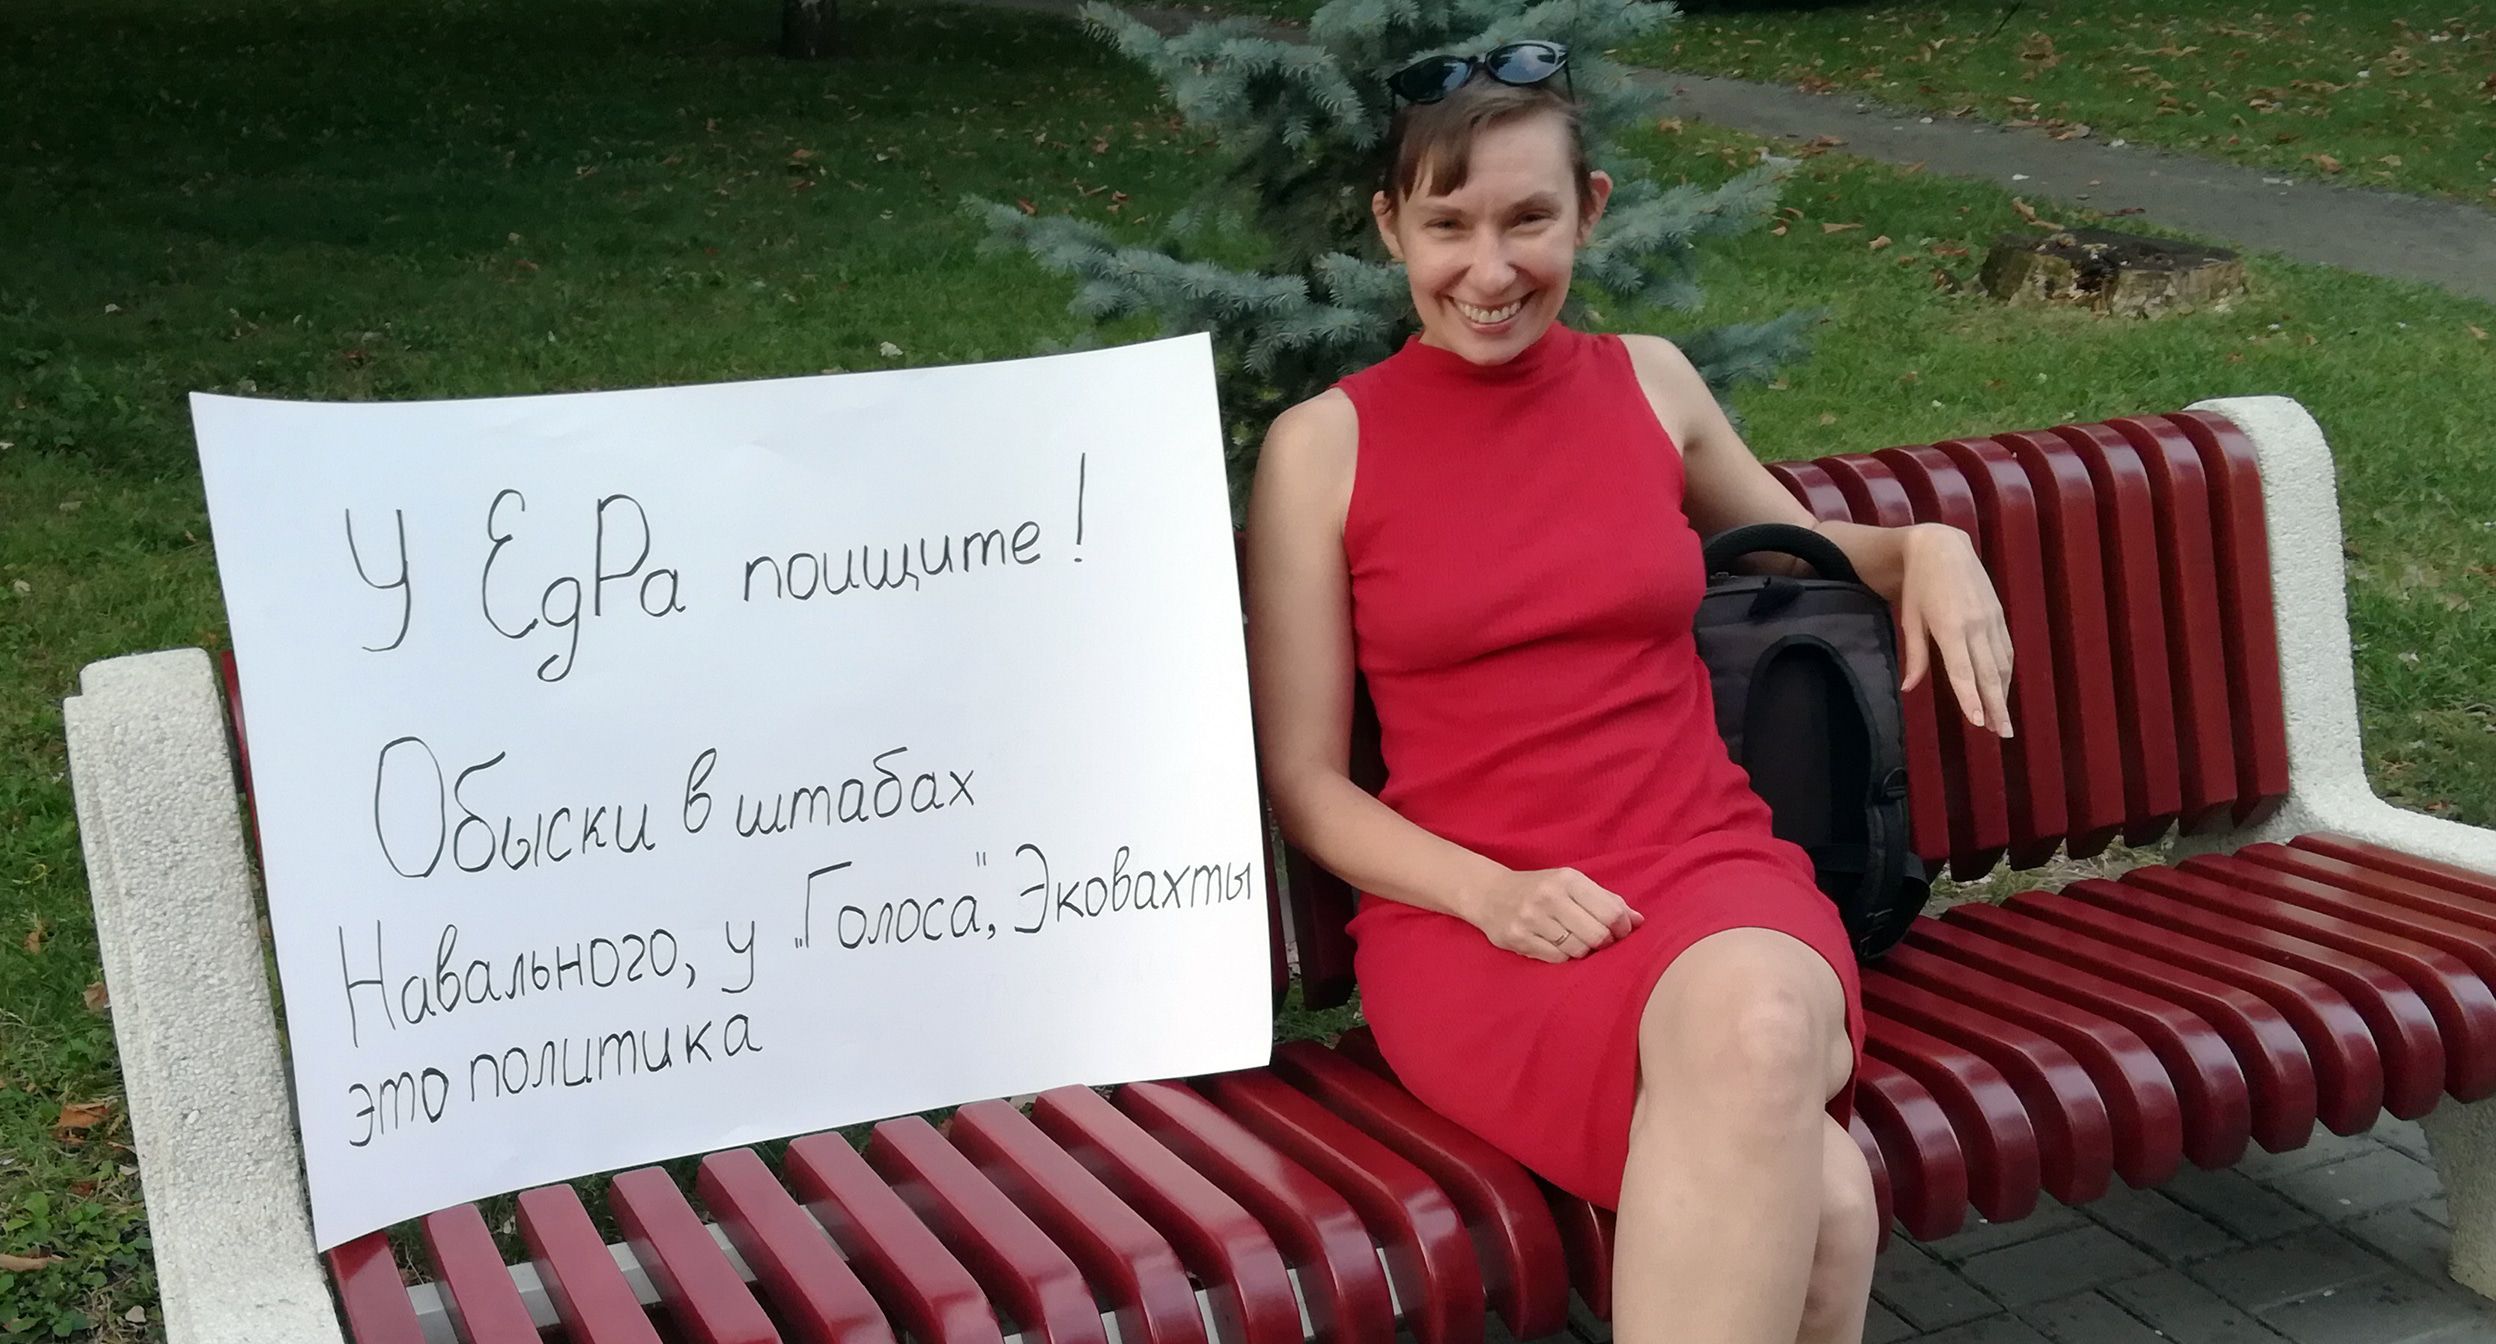 У ЕдРа поищите!
Обыски в штабах
Навального, у „Голоса", Эковахты
это политика